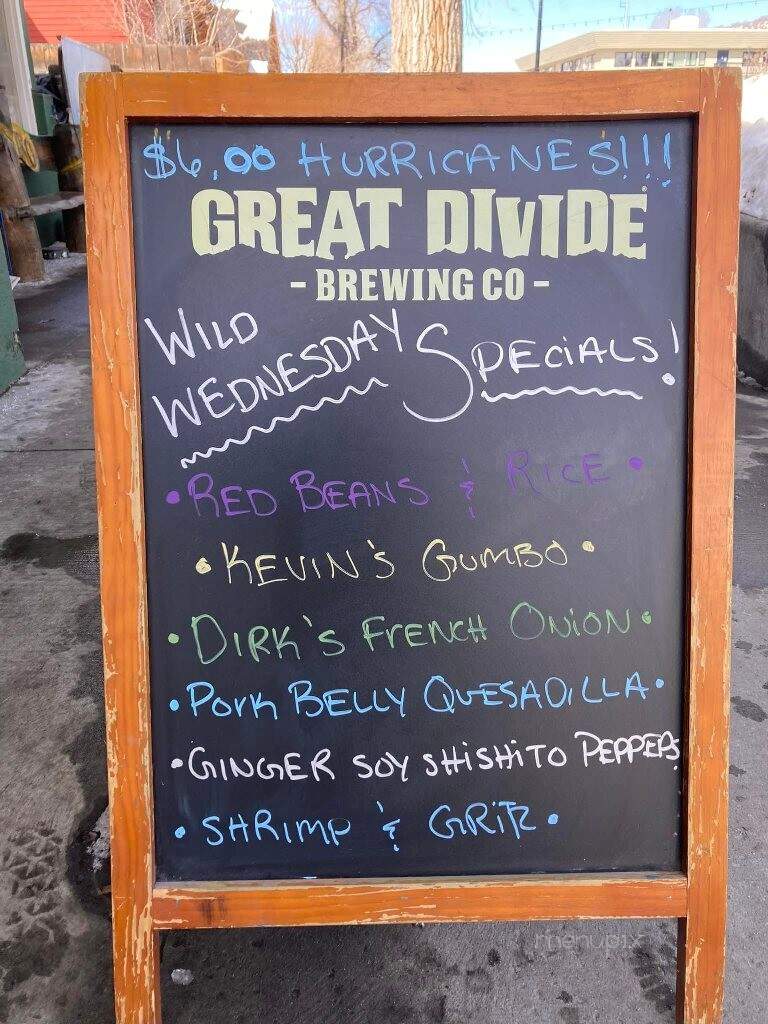 $6.00 HURRICANES!!!
GREAT DIVIDE
- BREWING CO -
WILD
WEDNESDAY SPECIALS!
• RED BEANS & RICE •
• KEVIN'S GUMBO •
• DIRK'S FRENCH ONION •
• PORK BELLY QUESADILLA •
• GINGER SOY SHISHITO PEPPERS
• SHRIMP & GRITZ •
menupix